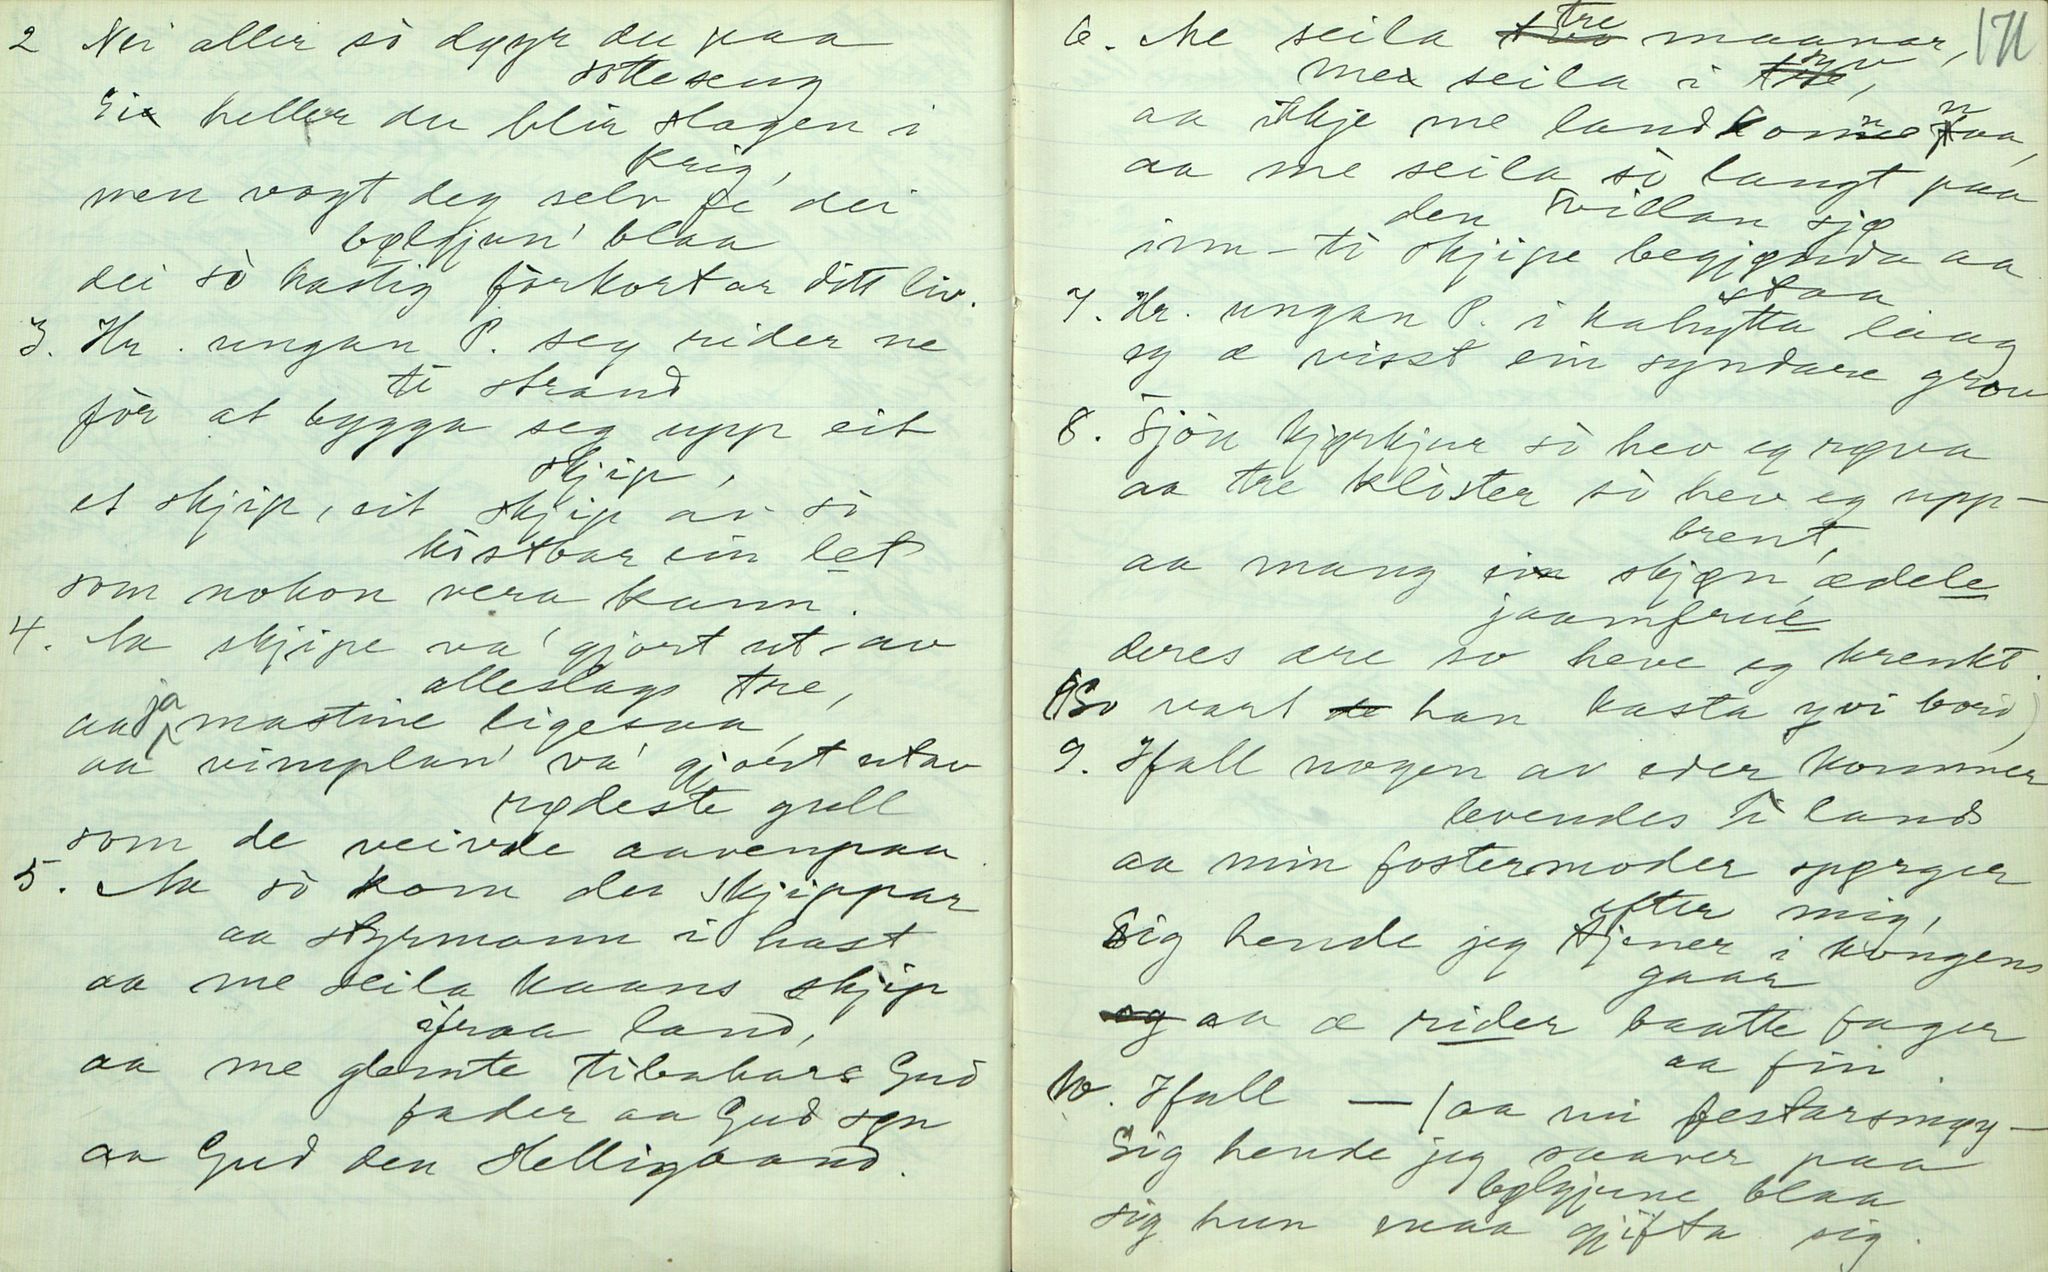 2 Nei aller sò døyr du paa
sotteseng
Ei heller du blir slagen i
krig,
men vogt deg selv fé dei
bølgjun' blaa
dei sò hastig fòrkortar ditt liv.
3. Hr. ungan P. seg rider ne
ti strand
fòr at bygga seg upp eit
skjip,
et skjip, eit skjip av sò
kostbar ein let
som nokon vera kann.
4. Aa skjipe va' gjort ut-av
alleslags tre,
aa ja mastrine ligesaa,
aa vimplan' va' gjort utav
rødeste gull
som de veivde aavenpaa.
5. Aa sò kom der skjippar
aa styrmann i hast
aa me seila kaans skjip
ifraa land,
aa me glemte tilbakars Gud
fader aa Gud søn
aa Gud den Helligaand.
171
6. Me seila tre maanar,
me seila i
aa ikkje me land konne naa,
aa me seila sò langt paa
den villan sjø
inn-ti skjipe begjønda aa
staa
7. Hr. ungan P. i kahytta laag
eg æ visst ein syndare grou
8. Sjòu kjørkjur sò hev eg røva
aa tre klòster sò hev eg upp-
brent,
aa mang skjøn, ædele
jaamfrue
deres ære so heve eg krenkt.
(So vart han kasta yvi bord)
9. Ifall nogen av eder kommer
levendes ti land
aa min fostermoder spørger
efter mig,
Sig hende jeg tjener i kongens
gaar
aa æ rider baatte fager
aa fin
10. Ifall — (aa mi festarsmøy —
Sig hende jeg saaver paa
bølgjune blaa
sig hun maa gjifta sig.